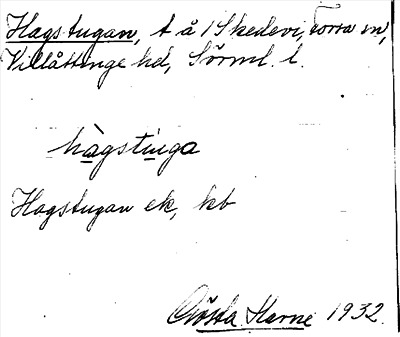 Hagstugan, t å 1 Skedevi, Torra sn,
Villåttinge hd, Sörml. l.
hagstuga
Hagstugan ek, kb
Gösta Karne 1932.